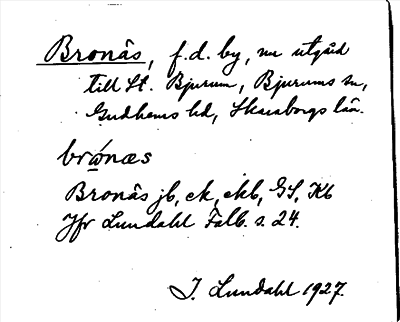 Bronäs, f.d. by, nu utgård
till St. Bjurum, Bjurums sn,
Gudhems hd, Skaraborgs län.
brọ́næs
Bronäs jb, ek, ekb, GS, Kb
Jfr Lundahl Falb. s. 24.
I. Lundahl 1927.